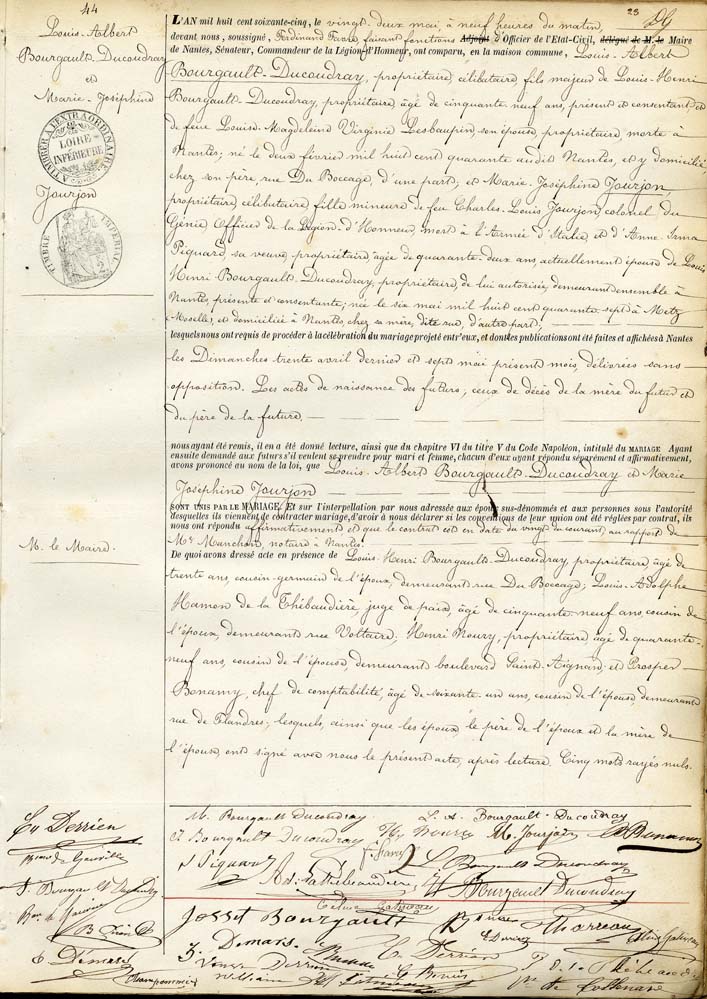 44
23
Louis-Albert
Bourgault-Ducoudray
et
Marie-Joséphine
Jourjon
TIMBRE A L'EXTRAORDINAIRE
LOIRE INFÉRIEURE
TIMBRE IMPÉRIAL
L'AN mil huit cent soixante-cinq, le vingt-deux mai à neuf heures du matin,
devant nous, soussigné, Ferdinand Favre, faisant fonctions Adjoint d'Officier de l'Etat-Civil, délégué de M. le Maire
de Nantes, Sénateur, Commandeur de la Légion d'Honneur, ont comparu, en la maison commune, Louis-Albert
Bourgault-Ducoudray, propriétaire, célibataire, fils majeur de Louis-Henri
Bourgault-Ducoudray, propriétaire, âgé de cinquante neuf ans, présent et consentant, et
de feue Louise-Magdeleine Virginie Lesbaupin, son épouse, propriétaire, morte à
Nantes; né le deux février mil huit cent quarante audit Nantes, et y domicilié
chez son père, rue Du Boccage, d'une part; et Marie-Joséphine Jourjon,
propriétaire, célibataire, fille mineure de feu Charles-Louis Jourjon, colonel du
Génie, Officier de la Légion d'Honneur, mort à l'Armée d'Italie et d'Anne-Irma
Piquard, sa veuve, propriétaire, âgée de quarante-deux ans, actuellement épouse de Louis
Henri Bourgault-Ducoudray, propriétaire, de lui autorisée, demeurant ensemble à
Nantes, présente & consentante; née le six mai mil huit cent quarante-sept à Metz
(Moselle), et domiciliée à Nantes, chez sa mère, dite rue, d'autre part;
lesquels nous ont requis de procéder à la célébration du mariage projeté entr'eux, et dont les publications ont été faites et affichées à Nantes
les Dimanches trente avril dernier et sept mai présent mois, délivrées sans
opposition. Les actes de naissance des futurs; ceux de décès de la mère du futur et
du père de la future.
nous ayant été remis, il en a été donné lecture, ainsi que du chapitre VI du titre V du Code Napoléon, intitulé DU MARIAGE. Ayant
ensuite demandé aux futurs s'il veulent se prendre pour mari et femme, chacun d'eux ayant répondu séparément et affirmativement,
avons prononcé au nom de la loi, que Louis-Albert Bourgault-Ducoudray et Marie
Joséphine Jourjon
SONT UNIS PAR LE MARIAGE. Et sur l'interpellation par nous adressée aux époux sus-dénommés et aux personnes sous l'autorité
desquelles ils viennent de contracter mariage, d'avoir à nous déclarer si les conventions de leur union ont été réglées par contrat, ils
nous ont répondu affirmativement et que le contrat est en date du vingt du courant au rapport de
Me Manchon, notaire à Nantes.
M. le Maire.
De quoi avons dressé acte en présence de Louis-Henri Bourgault-Ducoudray, propriétaire, âgé de
trente ans, cousin germain de l'époux, demeurant rue Du Boccage; Louis-Adolphe
Hamon de la Thébaudière, juge de paix, âgé de cinquante-neuf ans, cousin de
l'époux, demeurant rue Voltaire; Henri Noury, propriétaire, âgé de quarante-
neuf ans, cousin de l'épouse, demeurant boulevard Saint-Aignan; et Prosper
Bonamy, chef de comptabilité, âgé de soixante-un ans, cousin de l'épouse, demeurant
rue de Flandres; lesquels, ainsi que les époux, le père de l'époux et la mère de
l'épouse, ont signé avec nous le présent acte, après lecture. Cinq mots rayés nuls.
M. Bourgault Ducoudray
L. A. Bourgault-Ducoudray
Derrien
Bourgault Ducoudray
Hy Noury
M. Jourjon
Bonamy
Piquard
F Favre
Bourgault Ducoudray
Bourgault Ducoudray
Josset Bourgault
Thoreau
Demars
Derrien
Demars
William